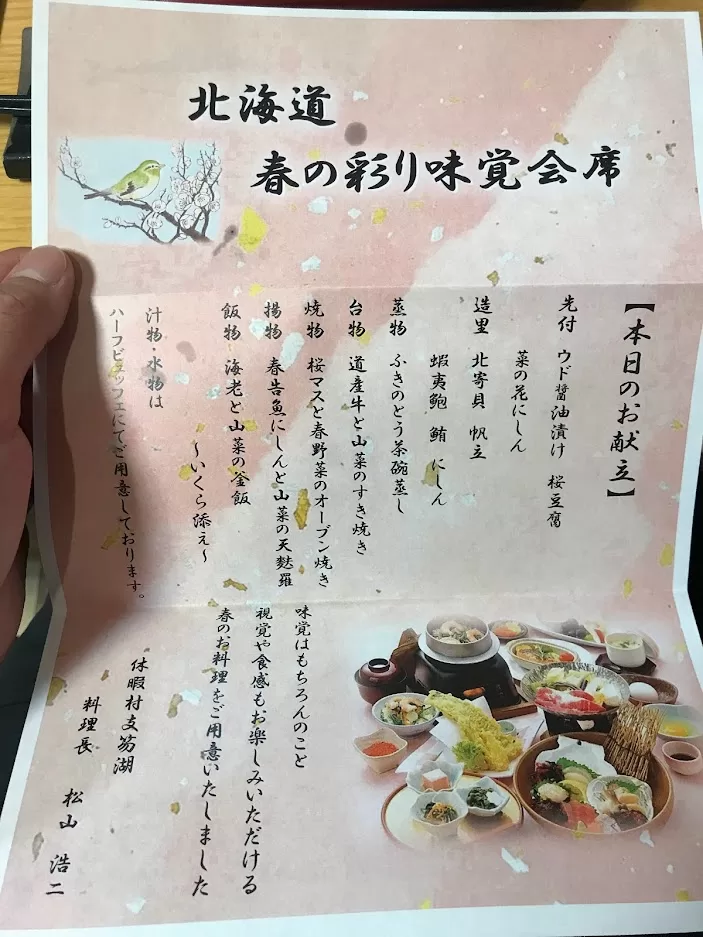 北海道
春の彩り味覚会席
【本日のお献立】
先付 ウド醤油漬け 桜豆腐
菜の花にしん
造里 北寄貝 帆立
蝦夷鮑 鮪 にしん
蒸物 ふきのとう茶碗蒸し
台物 道産牛と山菜のすき焼き
焼物 桜マスと春野菜のオーブン焼き
揚物 春告魚にしんと山菜の天麩羅
飯物 海老と山菜の釜飯
～いくら添え～
汁物・水物は
ハーフビュッフェにてご用意しております。
味覚はもちろんのこと
視覚や食感もお楽しみいただける
春のお料理をご用意いたしました
休暇村支笏湖
料理長 松山 浩二